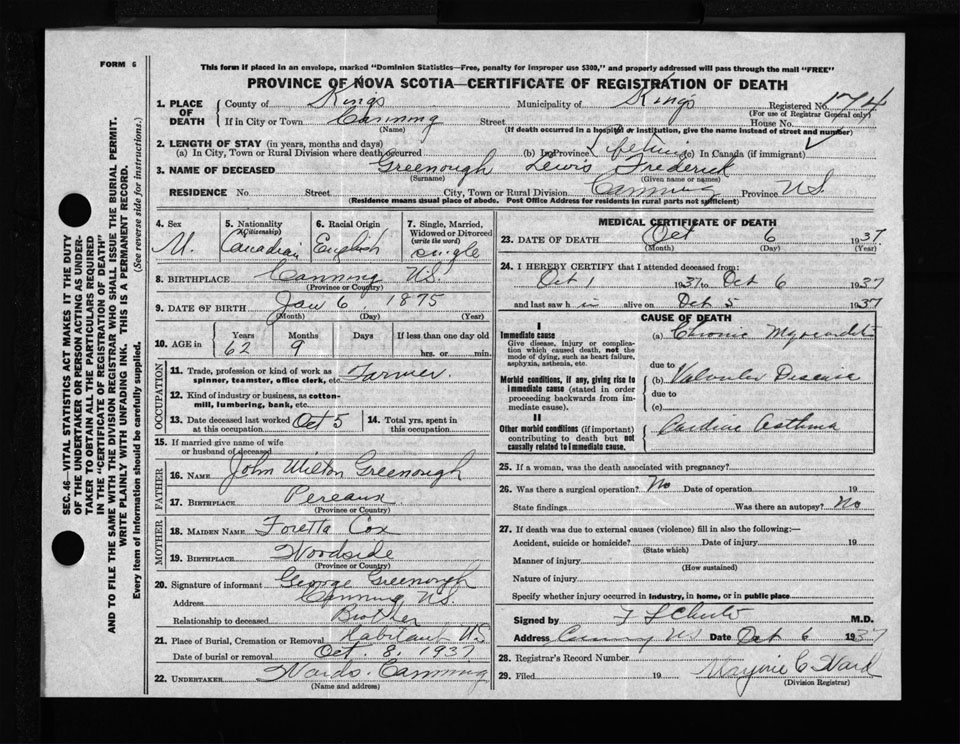 FORM 6
This form if placed in an envelope, marked "Dominion Statistics—Free, penalty for improper use $300," and properly addressed will pass through the mail "FREE"
PROVINCE OF NOVA SCOTIA—CERTIFICATE OF REGISTRATION OF DEATH
1. PLACE OF DEATH County of Kings Municipality of Kings Registered No. 174
(For use of Registrar General only)
If in City or Town Canning Street House No.
(Name) (If death occurred in a hospital or institution, give the name instead of street and number)
2. LENGTH OF STAY (in years, months and days)
(a) In City, Town or Rural Division where death occurred (b) In Province Lifetime (c) In Canada (if immigrant)
3. NAME OF DECEASED Greenough Lewis Frederick
(Surname) (Given name or names)
RESIDENCE No. Street City, Town or Rural Division Canning Province N.S.
(Residence means usual place of abode. Post Office Address for residents in rural parts not sufficient)
4. Sex 5. Nationality (Citizenship) 6. Racial Origin 7. Single, Married, Widowed or Divorced (write the word)
M. Canadian English single
8. BIRTHPLACE Canning N.S.
(Province or Country)
9. DATE OF BIRTH Jan 6 1875
(Month) (Day) (Year)
10. AGE in Years Months Days If less than one day old
62 9 hrs. or min.
OCCUPATION
11. Trade, profession or kind of work as spinner, teamster, office clerk, etc. Farmer.
12. Kind of industry or business, as cotton-mill, lumbering, bank, etc.
13. Date deceased last worked at this occupation Oct 5 14. Total yrs. spent in this occupation
15. If married give name of wife or husband of deceased
FATHER
16. NAME John Milton Greenough
17. BIRTHPLACE Pereaux
(Province or Country)
MOTHER
18. MAIDEN NAME Foretta Cox
19. BIRTHPLACE Woodside
(Province or Country)
20. Signature of informant George Greenough
Address Canning N.S.
Relationship to deceased Brother
21. Place of Burial, Cremation or Removal Habitant N.S
Date of burial or removal Oct. 8, 1937
22. UNDERTAKER Wards. Canning
(Name and address)
MEDICAL CERTIFICATE OF DEATH
23. DATE OF DEATH Oct 6 1937
(Month) (Day) (Year)
24. I HEREBY CERTIFY that I attended deceased from:
Oct 1 1937 to Oct 6 1937
and last saw him alive on Oct 5 1937
CAUSE OF DEATH
I
Immediate cause
Give disease, injury or complication which caused death, not the mode of dying, such as heart failure, asphyxia, asthenia, etc.
(a) Chronic Myocarditis
due to
Morbid conditions, if any, giving rise to immediate cause (stated in order proceeding backwards from immediate cause).
(b) Valvular Disease
due to
(c)
II
Other morbid conditions (if important) contributing to death but not causally related to immediate cause.
Cardiac Asthma
25. If a woman, was the death associated with pregnancy?
26. Was there a surgical operation? No Date of operation 19
State findings Was there an autopsy? No
27. If death was due to external causes (violence) fill in also the following:—
Accident, suicide or homicide? Date of injury 19
(State which)
Manner of injury
(How sustained)
Nature of injury
Specify whether injury occurred in industry, in home, or in public place
Signed by M.D.
Address Canning N.S Date Oct 6 1937
28. Registrar's Record Number
29. Filed 19 Marjorie C Ward
(Division Registrar)
SEC. 46—VITAL STATISTICS ACT MAKES IT THE DUTY
OF THE UNDERTAKER OR PERSON ACTING AS UNDER-
TAKER TO OBTAIN ALL THE PARTICULARS REQUIRED
IN THE "CERTIFICATE OF REGISTRATION OF DEATH"
AND TO FILE THE SAME WITH THE DIVISION REGISTRAR WHO SHALL ISSUE THE BURIAL PERMIT.
WRITE PLAINLY WITH UNFADING INK. THIS IS A PERMANENT RECORD.
Every item of information should be carefully supplied. (See reverse side for instructions.)